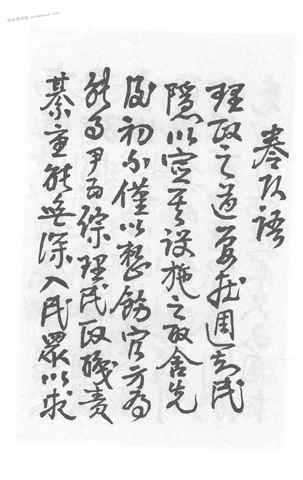 卷頭語
理政之道要在週知民
隱以定其設施之取舍先
後初不僅以整飭官方為
能事尹而綜理民政職責
綦重能無深入民眾以求